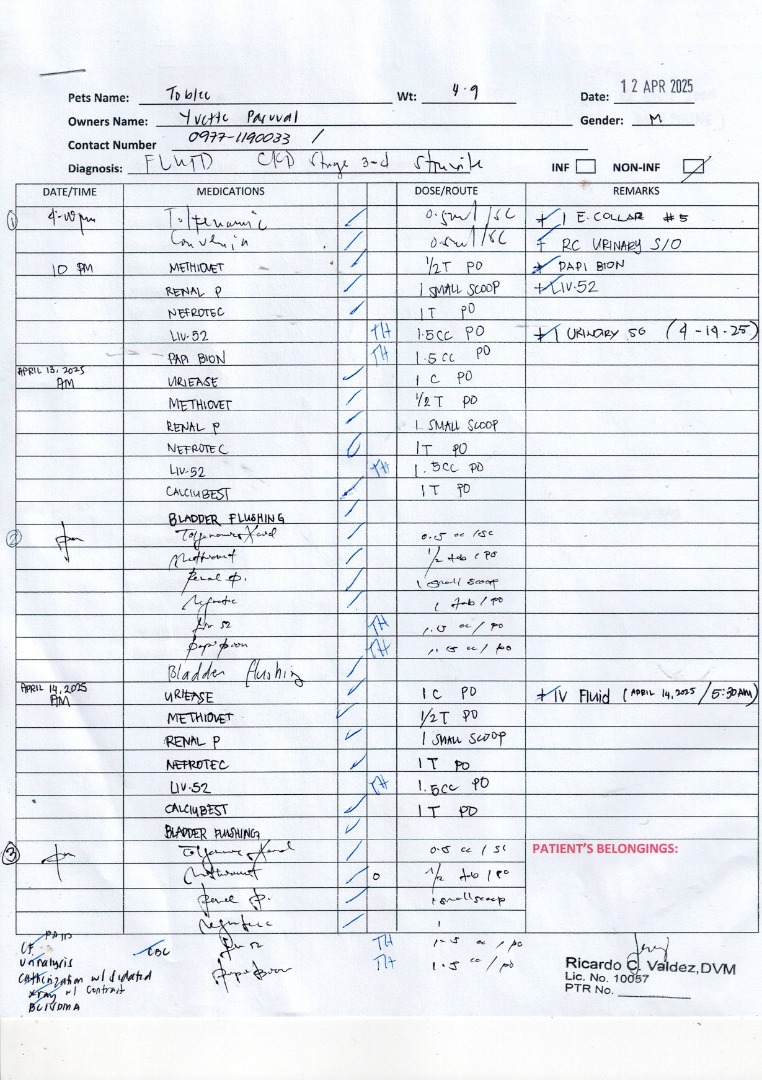 Pets Name: Wt: 4.9 Date: 12 APR 2025
Owners Name: Yvette Gender: M
Contact Number 0977-1190033 /
Diagnosis: FLUTD CKD Stage 3-4 Struvite INF NON-INF
DATE/TIME MEDICATIONS DOSE/ROUTE REMARKS
① Tolfenamic 0.5ml /SC + 1 E. COLLAR #5
Convenia /SC + RC URINARY S/O
10 PM METHIOVET 1/2 T PO + PAPI BION
RENAL P 1 SMALL SCOOP + LIV-52
NEFROTEC 1 T PO
LIV-52 TH 1.5cc PO + 1 URINARY SO (4-14-25)
PAPI BION TH 1.5cc PO
APRIL 13, 2025
AM URIEASE 1 C PO
METHIOVET 1/2 T PO
RENAL P 1 SMALL SCOOP
NEFROTEC 1T PO
LIV-52 TH 1.5cc PO
CALCIUBEST 1T PO
BLADDER FLUSHING
② pm 0.5 cc /SC
Methiovet 1/2 tab / PO
Renal P. 1 small scoop
1 tab / PO
Liv 52 TH 1.5 cc / PO
Papi bion TH 1.5 cc / PO
Bladder flushing
APRIL 14, 2025
AM URIEASE 1 C PO + IV Fluid (APRIL 14, 2025 / 5:30AM)
METHIOVET 1/2 T PO
RENAL P 1 SMALL SCOOP
NEFROTEC 1 T PO
LIV-52 TH 1.5cc PO
CALCIUBEST 1 T PO
BLADDER FLUSHING
③ pm 0.5 cc / SC PATIENT'S BELONGINGS:
Methiovet 1/2 tab / PO
Renal P. 1 small scoop
1
Liv 52 TH 1.5 cc / PO
Papi bion TH 1.5 cc / PO
PAID
CF CBC
Urinalysis
w/ sedated
xray w/ Contrast
Ricardo C. Valdez, DVM
Lic. No. 10057
PTR No.